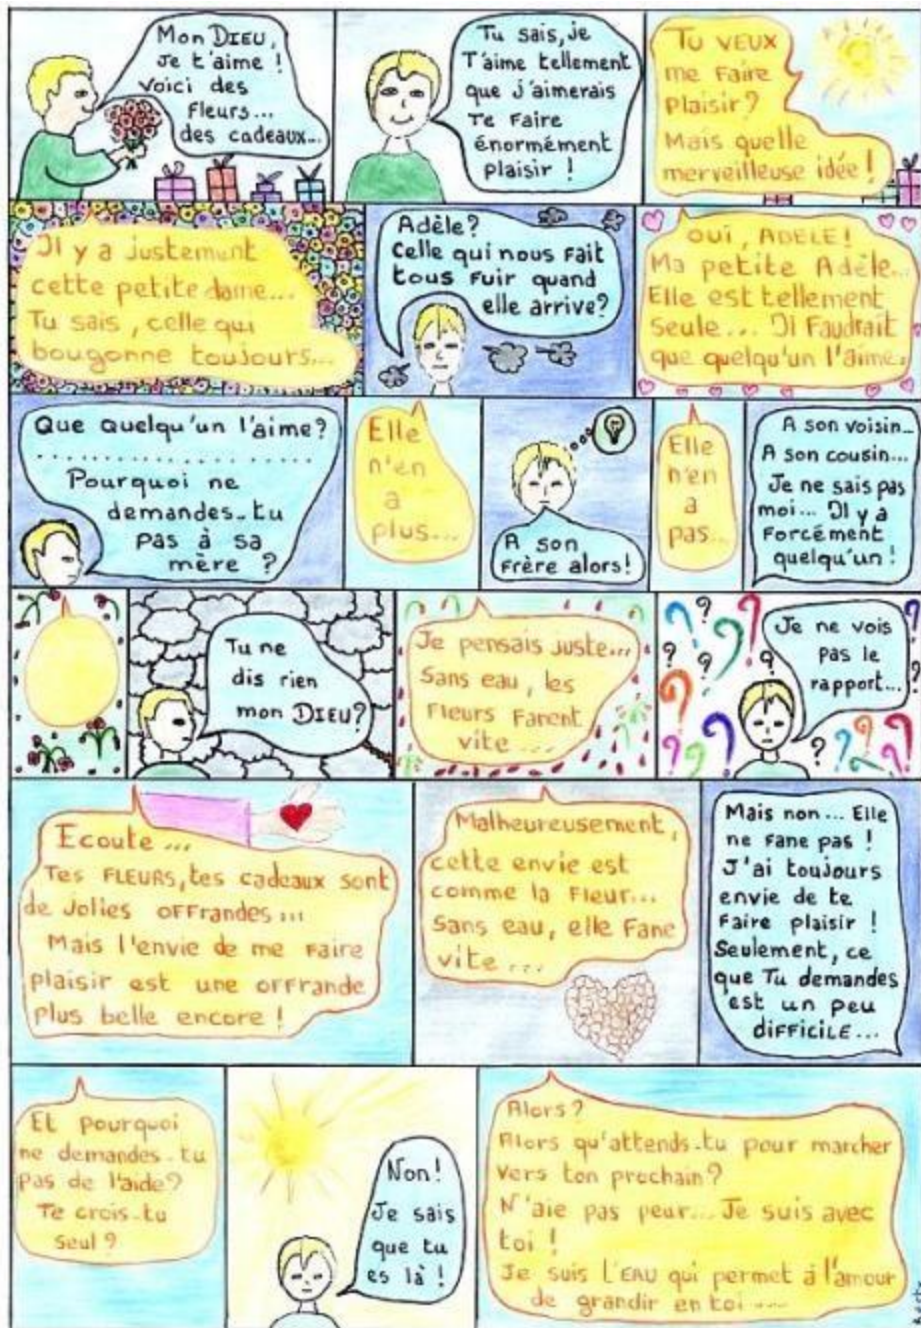 Mon DIEU,
Je t'aime !
Voici des
Fleurs...
des cadeaux...
Tu sais, je
T'aime tellement
que j'aimerais
Te Faire
énormément
plaisir !
Tu VEUX
me Faire
plaisir ?
Mais quelle
merveilleuse idée !
Il y a justement
cette petite dame...
Tu sais, celle qui
bougonne toujours...
Adèle ?
Celle qui nous Fait
tous Fuir quand
elle arrive ?
OUI, ADELE !
Ma petite Adèle...
Elle est tellement
seule... Il Faudrait
que quelqu'un l'aime.
Que Quelqu'un l'aime ?
....................
Pourquoi ne
demandes-tu
pas à sa
mère ?
Elle
n'en
a
plus...
A son
Frère alors !
Elle
n'en
a
pas...
A son voisin...
A son cousin...
Je ne sais pas
moi... Il y a
Forcément
quelqu'un !
Tu ne
dis rien
mon DIEU ?
Je pensais juste...
Sans eau, les
Fleurs Fanent
vite...
Je ne vois
pas le
rapport...
Ecoute...
Tes FLEURS, tes cadeaux sont
de Jolies OFFRandes...
Mais l'envie de me Faire
plaisir est une oFFrande
plus belle encore !
Malheureusement,
cette envie est
comme la Fleur...
Sans eau, elle Fane
vite...
Mais non... Elle
ne Fane pas !
J'ai toujours
envie de te
Faire plaisir !
Seulement, ce
que Tu demandes
est un peu
diFFiCILE...
Et pourquoi
ne demandes-tu
pas de l'aide ?
Te crois-tu
seul ?
Non !
Je sais
que tu
es là !
Alors ?
Alors qu'attends-tu pour marcher
vers ton prochain ?
N'aie pas peur... Je suis avec
toi !
Je suis L'EAU qui permet à l'amour
de grandir en toi....